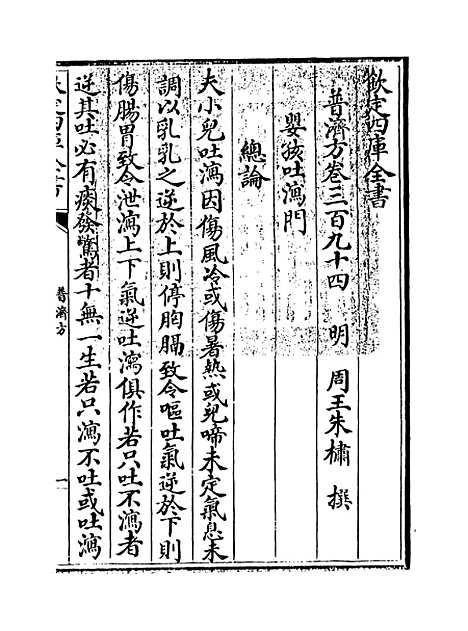 欽定四庫全書
普濟方卷三百九十四　明　周王朱橚　撰
嬰孩吐瀉門
總論
夫小兒吐瀉因傷風冷或傷暑熱或兒啼未定氣息未
調以乳乳之逆於上則停胸膈致令嘔吐氣逆於下則
傷腸胃致令泄瀉上下氣逆吐瀉俱作若只吐不瀉者
逆其吐必有痰發驚者十無一生若只瀉不吐或吐瀉
普濟方
一